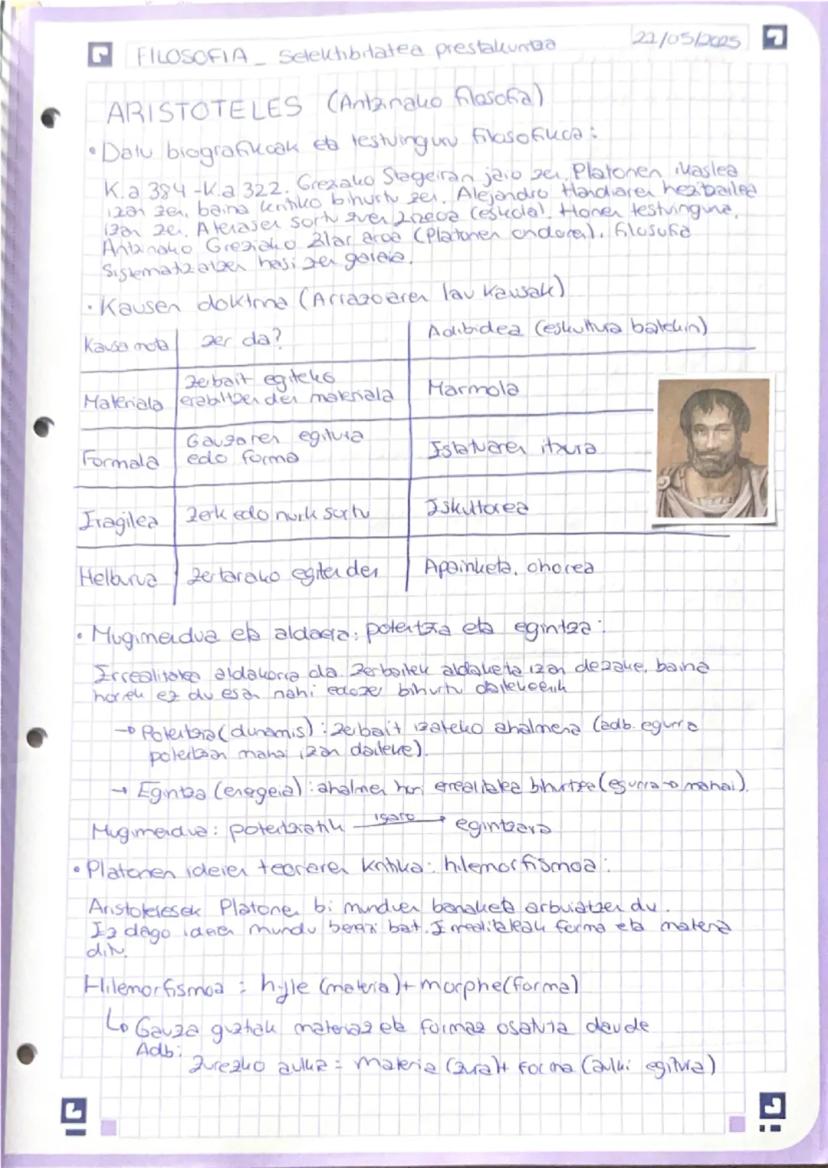 FILOSOFIA_ Selektibitatea prestakuntza 22/05/2025
ARISTOTELES (Antzinako filosofia)
• Datu biografikoak eta testuinguru filosofikoa:
K.a 384 - K.a 322. Greziako Stageiran jaio zen. Platonen ikaslea
izan zen, baina kritiko bihurtu zen. Alejandro Handiaren hezitzailea
izan zen. Atenasen sortu zuen Lizeoa (eskola). Honen testuingurua,
Antzinako Greziako Zilar aroa (Platonen ondoren). Filosofia
Sistematizatzen hasi zen garaia.
• Kausen doktrina (Arrazoiaren lau kausak)
Kausa mota zer da? Adibidea (eskultura batekin)
Materiala zerbait egiteko erabiltzen den materiala Marmola
Formala Gauzaren egitura edo forma Estatuaren itxura
Eragilea Zerk edo nork sortu Eskultorea
Helburua zertarako egiten den Apainketa, ohorea
• Mugimendua eta aldaera: potentzia eta egintza:
Errealitatea aldakorra da. Zerbaitek aldaketa izan dezake, baina
horrek ez du esan nahi edozer bihurtu daitekeenik
→ Potentzia (dunamis): zerbait izateko ahalmena (adb. egurra
potentzian mahai izan daiteke).
→ Egintza (energeia): ahalmen hori errealitatea bihurtzea (egurra → mahai).
Mugimendua: potentziatik igaro → egintzara
• Platonen ideien teoriaren kritika: hilemorfismoa:
Aristotelesek Platonen bi munduen banaketa arbuiatzen du.
Ez dago ideien mundu berezi bat. Errealitateak forma eta materia
ditu.
Hilemorfismoa = hyle (materia) + morphe (forma)
↳ Gauza guztiak materiaz eta formaz osatuta daude
Adb:
Zurezko aulkia = materia (zura) + forma (aulki egitura)